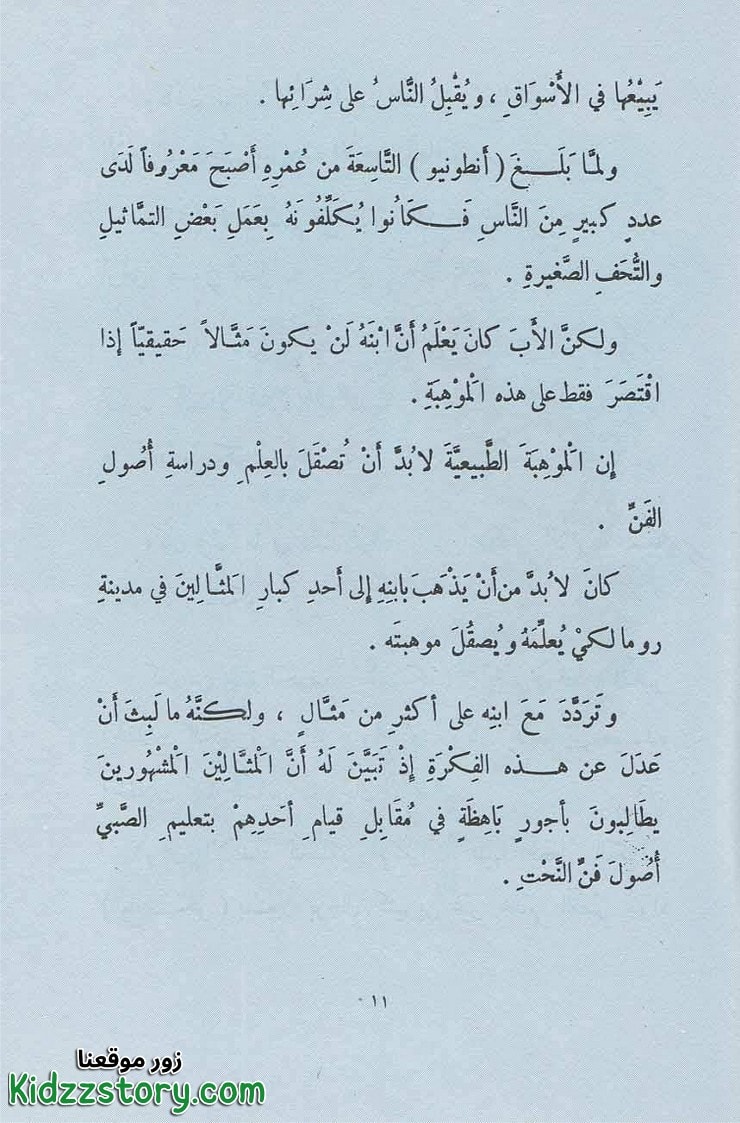 يَبِيْعُها في الأَسْوَاقِ ، ويُقْبِلُ النَّاسُ على شِرَائِها .
ولمَّا بَلَـغَ ( أنطونيو ) التَّاسِعَةَ من عُمْرِهِ أَصْبَحَ مَعْرُوفاً لَدَى
عددٍ كبيرٍ مِنَ النَّاسِ فَـكَانُوا يُكَلِّفُونَهُ بِعَمَلِ بَعْضِ التمَّاثيلِ
والتُّحَفِ الصَّغيرةِ .
ولكنَّ الأَبَ كانَ يَعْلَمُ أَنَّ ابْنَهُ لَنْ يكونَ مَثَّـالاً حَقيقيّاً إذا
اقْتَصَرَ فقط على هذه المَوْهِبَةِ .
إن المَوْهِبَةَ الطَّبيعيَّةَ لا بُدَّ أَنْ تُصْقَلَ بالعِلْمِ ودراسةِ أُصُولِ
الفَنِّ .
كانَ لا بُدَّ من أَنْ يَذْهَبَ بابنِهِ إلى أَحدِ كبارِ المَثَّـالِينَ في مدينةِ
روما لكيْ يُعلِّمَهُ ويُصقُلَ موهبتَه .
وتَرَدَّدَ مَعَ ابنِه على أكثرِ من مَثَّـالٍ ، ولكنَّهُ ما لَبِثَ أَنْ
عَدَلَ عن هـذه الفِكْرَةِ إذْ تَبَيَّنَ لَهُ أَنَّ المَثَّالِيْنَ المَشْهُورينَ
يطَالِبونَ بأجورٍ بَاهِظَةٍ في مُقَابِلِ قيامِ أَحَدِهِمْ بتعليمِ الصَّبيِّ
أُصُولَ فَنِّ النَّحْتِ .
١١
زور موقعنا
Kidzzstory.com